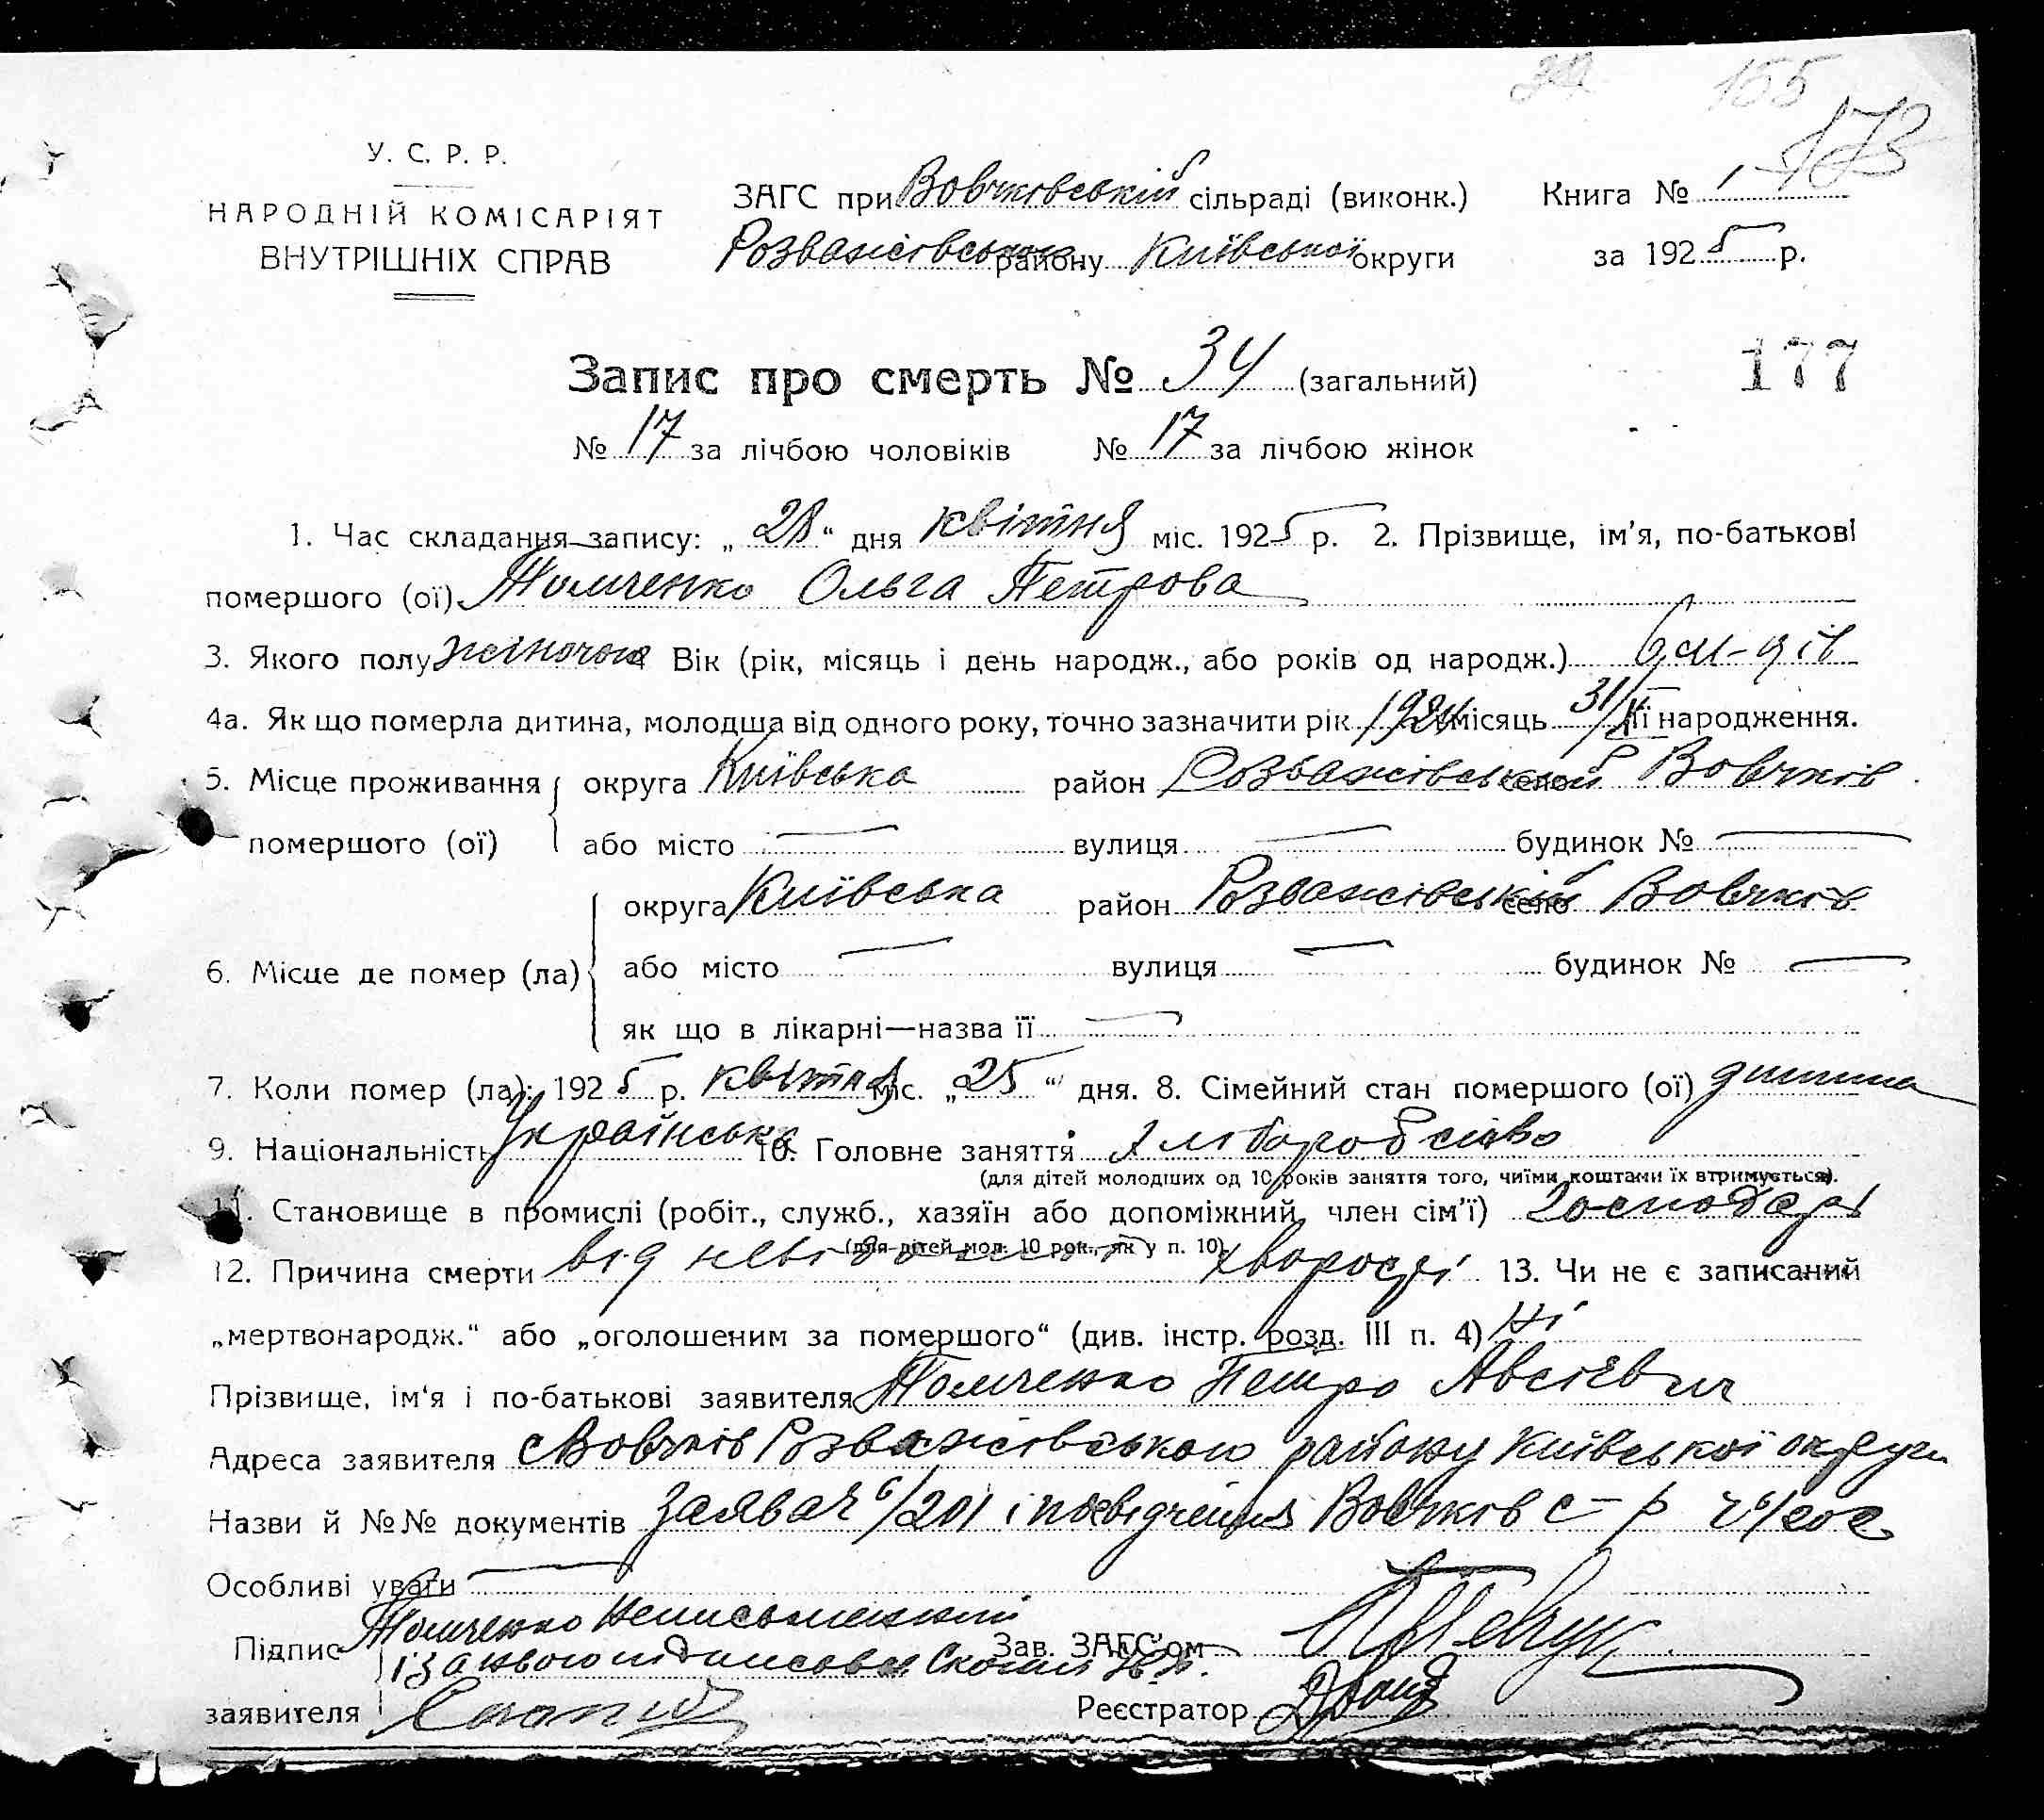 155
173
У. С. Р. Р.
НАРОДНІЙ КОМІСАРІЯТ
ВНУТРІШНІХ СПРАВ
ЗАГС при Вовчківській сільраді (виконк.)
Розважівського району Київської округи
Книга № 1
за 1925 р.
177
Запис про смерть № 34 (загальний)
№ 17 за лічбою чоловіків № 17 за лічбою жінок
1. Час складання запису: „28“ дня квітня міс. 1925 р. 2. Прізвище, ім'я, по-батькові
помершого (ої) Толченко Ольга Петрова
3. Якого полу жіночого Вік (рік, місяць і день народж., або років од народж.) 6 м-ців
4а. Як що померла дитина, молодша від одного року, точно зазначити рік 1924 місяць 31/ її народження.
5. Місце проживання помершого (ої) округа Київська район Розважівський село Вовчків
або місто — вулиця — будинок № —
6. Місце де помер (ла) округа Київська район Розважівський село Вовчків
або місто — вулиця — будинок № —
як що в лікарні—назва її —
7. Коли помер (ла): 1925 р. квітня міс. „25“ дня. 8. Сімейний стан помершого (ої) дитина
9. Національність Українська 10. Головне заняття Хліборобство
(для дітей молодших од 10 років заняття того, чиїми коштами їх втримується).
11. Становище в промислі (робіт., служб., хазяїн або допоміжний член сім'ї) Господарі
(для дітей мол. 10 рок., як у п. 10).
12. Причина смерти від невідомої хворости 13. Чи не є записаний
„мертвонародж.“ або „оголошеним за помершого“ (див. інстр. розд. III п. 4) Ні
Прізвище, ім'я і по-батькові заявителя Толченко Петро Авсієвич
Адреса заявителя с Вовчків Розважівського району Київської округи
Назви й №№ документів заява ч 6/201 і посвідчення Вовчків с-р ч 6/202
Особливі уваги —
Підпис заявителя Толченко Неписьменний
і за нього підписався
Зав. ЗАГС'ом
Реєстратор